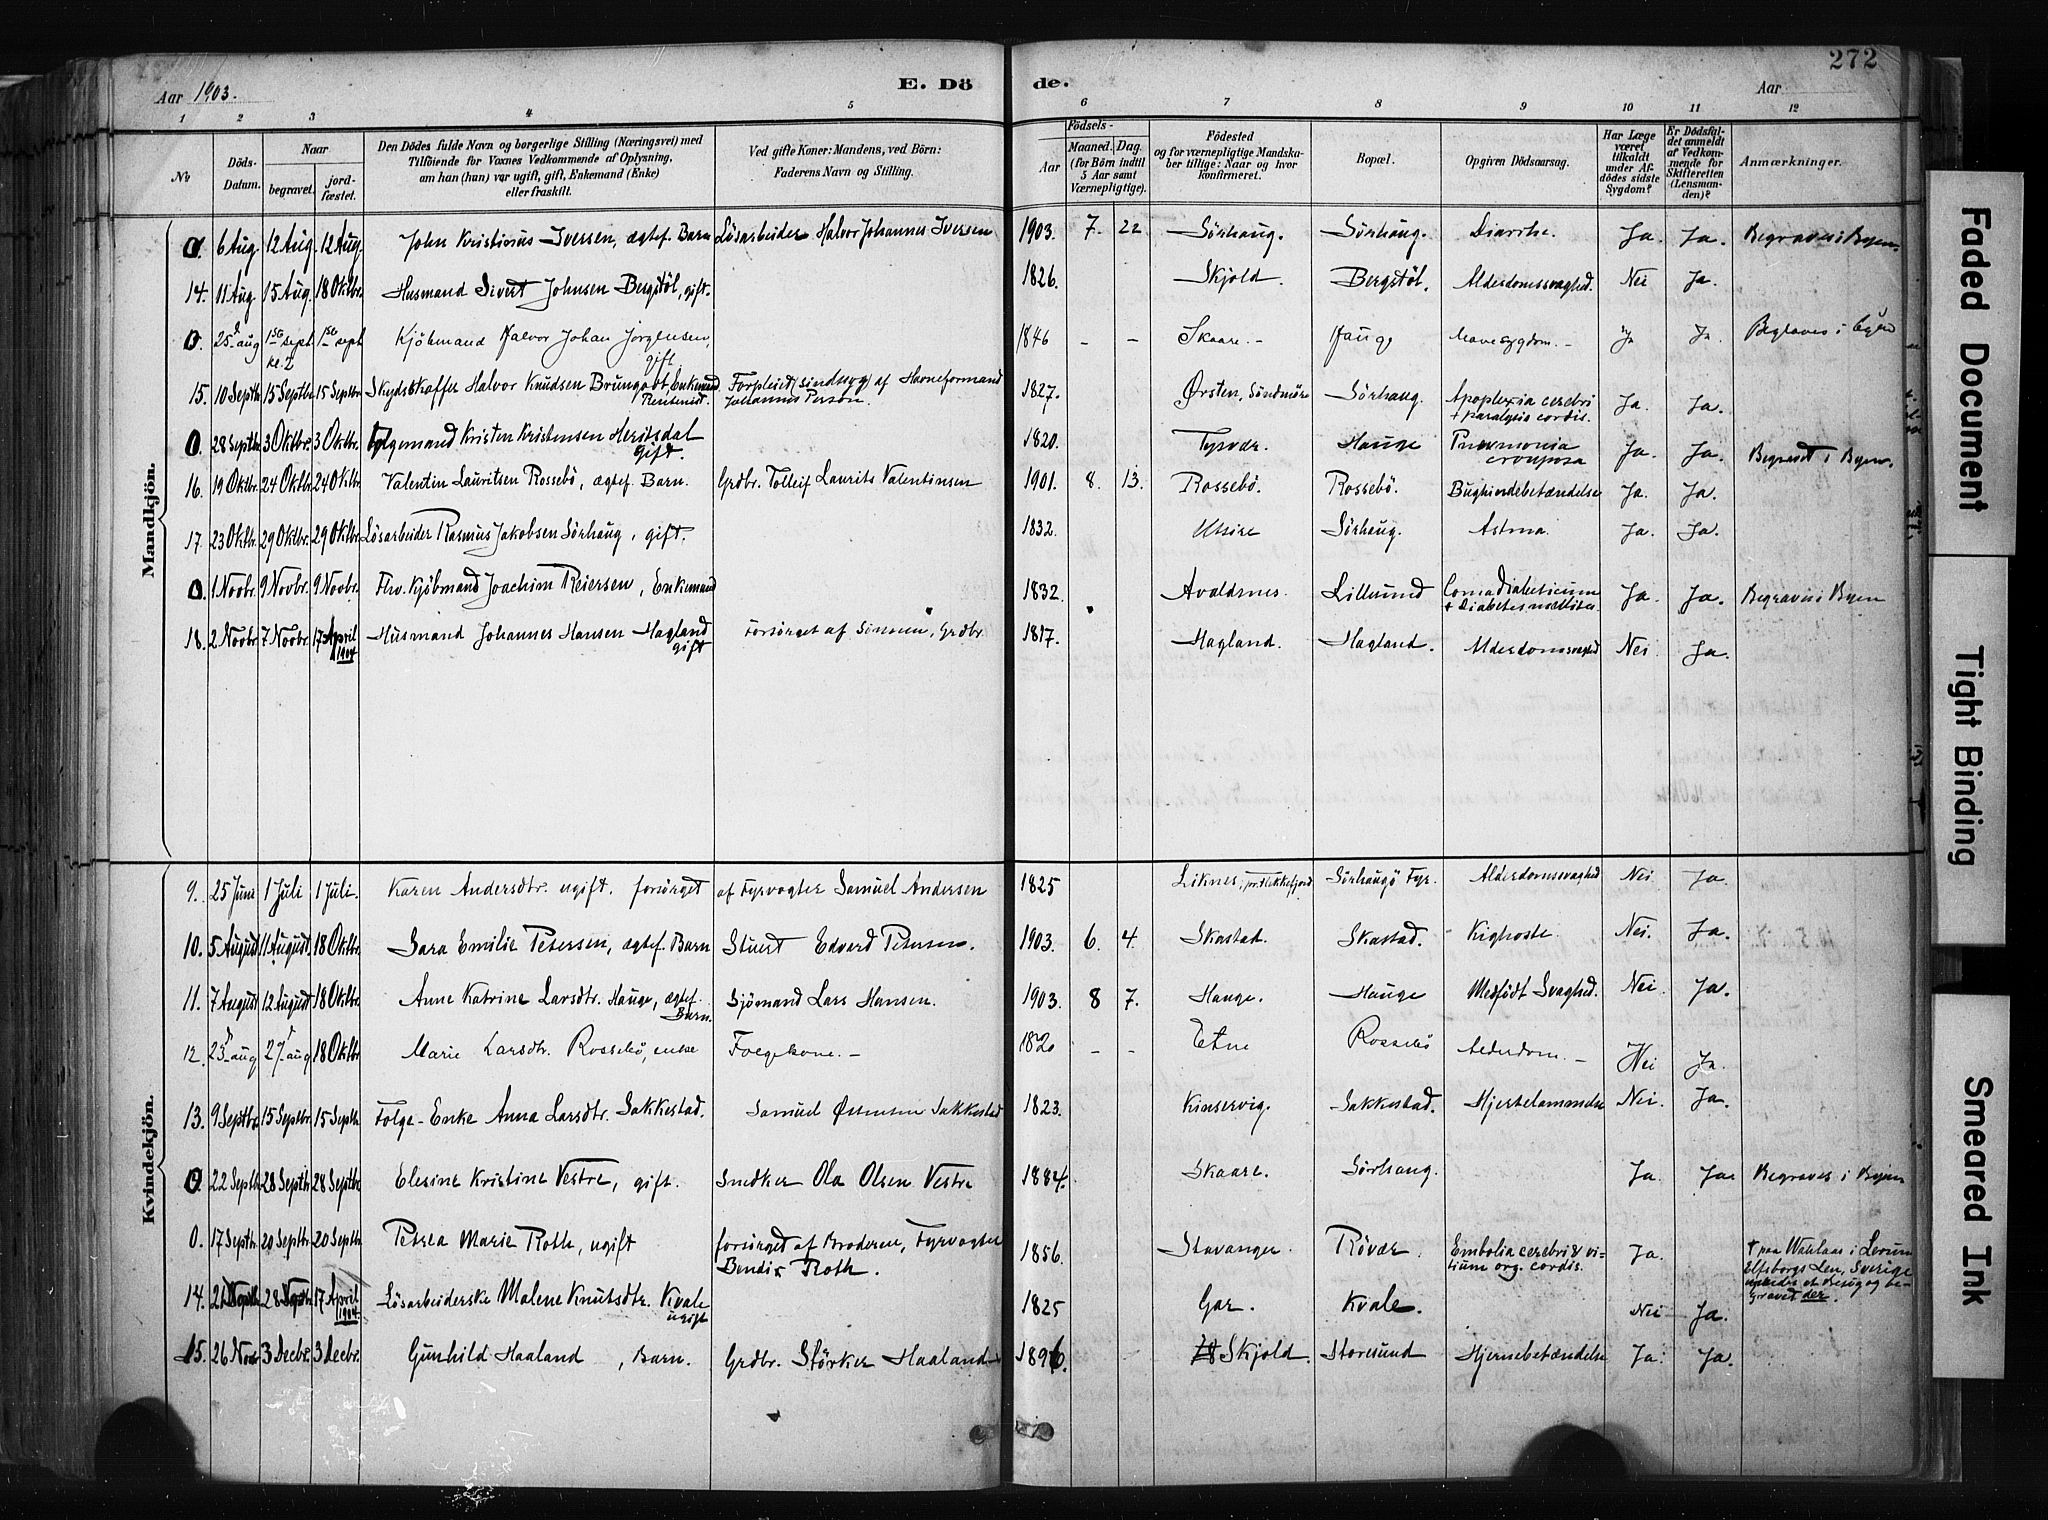 272
Aar 1903.
E. Dö
de.
Aar
1 2 3 4 5 6 7 8 9 10 11 12
No
Döds-Datum.
Naar
begravet.
jordfæstet.
Den Dödes fulde Navn og borgerlige Stilling (Næringsvei) med
Tilföiende for Voxnes Vedkommende af Oplysning,
om han (hun) var ugift, gift, Enkemand (Enke)
eller fraskilt.
Ved gifte Koner: Mandens, ved Börn:
Faderens Navn og Stilling.
Födsels-
Aar
Maaned. Dag.
(for Börn indtil
5 Aar samt
Værnepligtige).
Födested
og for værnepligtige Mandska-
ber tillige: Naar og hvor
konfirmeret.
Bopæl.
Opgiven Dödsaarsag.
Har Læge
været
tilkaldt
under Af-
dödes sidste
Sygdom?
Er Dödsfal-
det anmeldt
af Vedkom-
mende for
Skifteretten
(Lensman-
den)?
Anmærkninger.
Mandkjön.
0. 6 Aug. 12 Aug. 12 Aug. John Kristinius Iversen, ægtef. Barn Lösarbeider Halvor Johannes Iversen 1903. 7. 22. Sörhaug. Sörhaug. Diarrhe. Ja. Ja. Begraves i Byen.
14. 11 Aug. 15 Aug. 18 Oktbr. Husmand Sivert Johnsen Bergstöl, gift. 1826. - - Skjold. Bergstöl. Alderdomssvaghed. Nei Ja.
0. 25 aug 1ste sept kl. 2 1ste sept Kjöbmand Halvor Johan Jörgensen, gift 1846 - - Skaare. - Hauge Mavesygdom. - Ja Ja. Begraves i Byen
15. 10 Septbr. 15 Septbr. 15 Septbr. Skydsskaffer Halvor Knudsen Brungodt, Enkemand Rentenist. Forpleiet (sindssyg) af Havneformand Johannes Person. 1827. Ørsten, Söndmöre Sörhaug. Apoplexia cerebri + paralysis cordis. Ja. Ja.
0. 28 Septbr. 3 Oktbr. 3 Oktbr. Fölgemand Kristen Kristensen Hervisdal gift. 1820. Tysvær. Hauge Pneumonia crouposa Ja. Ja. Begravet i Byen.
16. 19 Oktbr. 24 Oktbr. 24 Oktbr. Valentin Lauritsen Rossebö, ægtef. Barn. Grdbr. Tolleif Laurits Valentinsen 1901. 8. 13. Rossebö. Rossebö. Bughindebetændelse Ja. Ja.
17. 23 Oktbr. 29 Oktbr. 29 Oktbr. Lösarbeider Rasmus Jakobsen Sörhaug, gift. 1832. Utsire Sörhaug. Astma. Ja. Ja.
0. 1 Novbr. 9 Novbr. 9 Novbr. Fhv. Kjöbmand Joachim Reiersen, Enkemand 1832. Avaldsnes. Lillesund Coma diabeticum + Diabetes mellitus. Ja. Ja. Begraves i Byen
18. 2 Novbr. 7 Novbr. 17 April 1904 Husmand Johannes Hansen Hagland gift Forsörget af Sönnen, Grdbr. 1817. Hagland. Hagland. Alderdomssvaghed Nei. Ja.
Kvindekjön.
9. 25 Juni 1 Juli 1 Juli. Karen Andersdtr. ugift. forsörget af Fyrvogter Samuel Andersen 1825 Liknes, pr. Flekkefjord Sörhaugö Fyr. Alderdomssvaghed Nei. Ja.
10. 5 August 11 August. 18 Oktbr. Sara Emilie Petersen, ægtef. Barn Stuert Edvard Petersen. 1903. 6. 4. Skastad. Skastad. Kighoste. Nei. Ja.
11. 7 August 12 August 18 Oktbr. Anne Katrine Larsdtr. Hauge, ægtef. Barn. Sjömand Lars Hansen. 1903. 8 7. Hauge. Hauge Medfödt Svaghed. Nei. Ja.
12. 23 aug 27 aug 18 Oktbr. Marie Larsdtr. Rossebö, enke Folgekone. - 1820 - - Etne Rossebö Alderdom. - Nei Ja.
13. 9 Septbr. 15 Septbr. 15 Septbr. Folge-Enke Anna Larsdtr. Sakkestad. Samuel Östensen Sakkestad 1823. Kinservig. Sakkestad. Hjertelammelse Nei. Ja.
0 22 Septbr. 28 Septbr. 28 Septbr. Elesine Kristine Vestre, gift. Snedker Ola Olsen Vestre 1884. Skaare. Sörhaug. Ja. Ja. Begraves i Byen
0. 17 Septbr. 20 Septbr. 20 Septbr. Petrea Marie Roth, ugift forsörget af Broderen, Fyrvogter Bendix Roth. 1856. Stavanger. Rövær. Embolia cerebri & vitium org. cordis. Ja. † paa Wahlaas i Lerum Elfsborgs Len, Sverige under et Besög og begravet der
14. 21 Septbr. 28 Septbr. 17 April 1904. Lösarbeiderske Malene Knutsdtr. Kvale ugift 1825 Gar. Kvale. Nei Ja.
15. 26 Novbr. 3 Decbr. 3 Decbr. Gunhild Haaland, Barn. Grdbr. Störker Haaland 1896. Skjold. Storesund Hjernebetændelse Ja. Ja.
Faded Document
Tight Binding
Smeared Ink